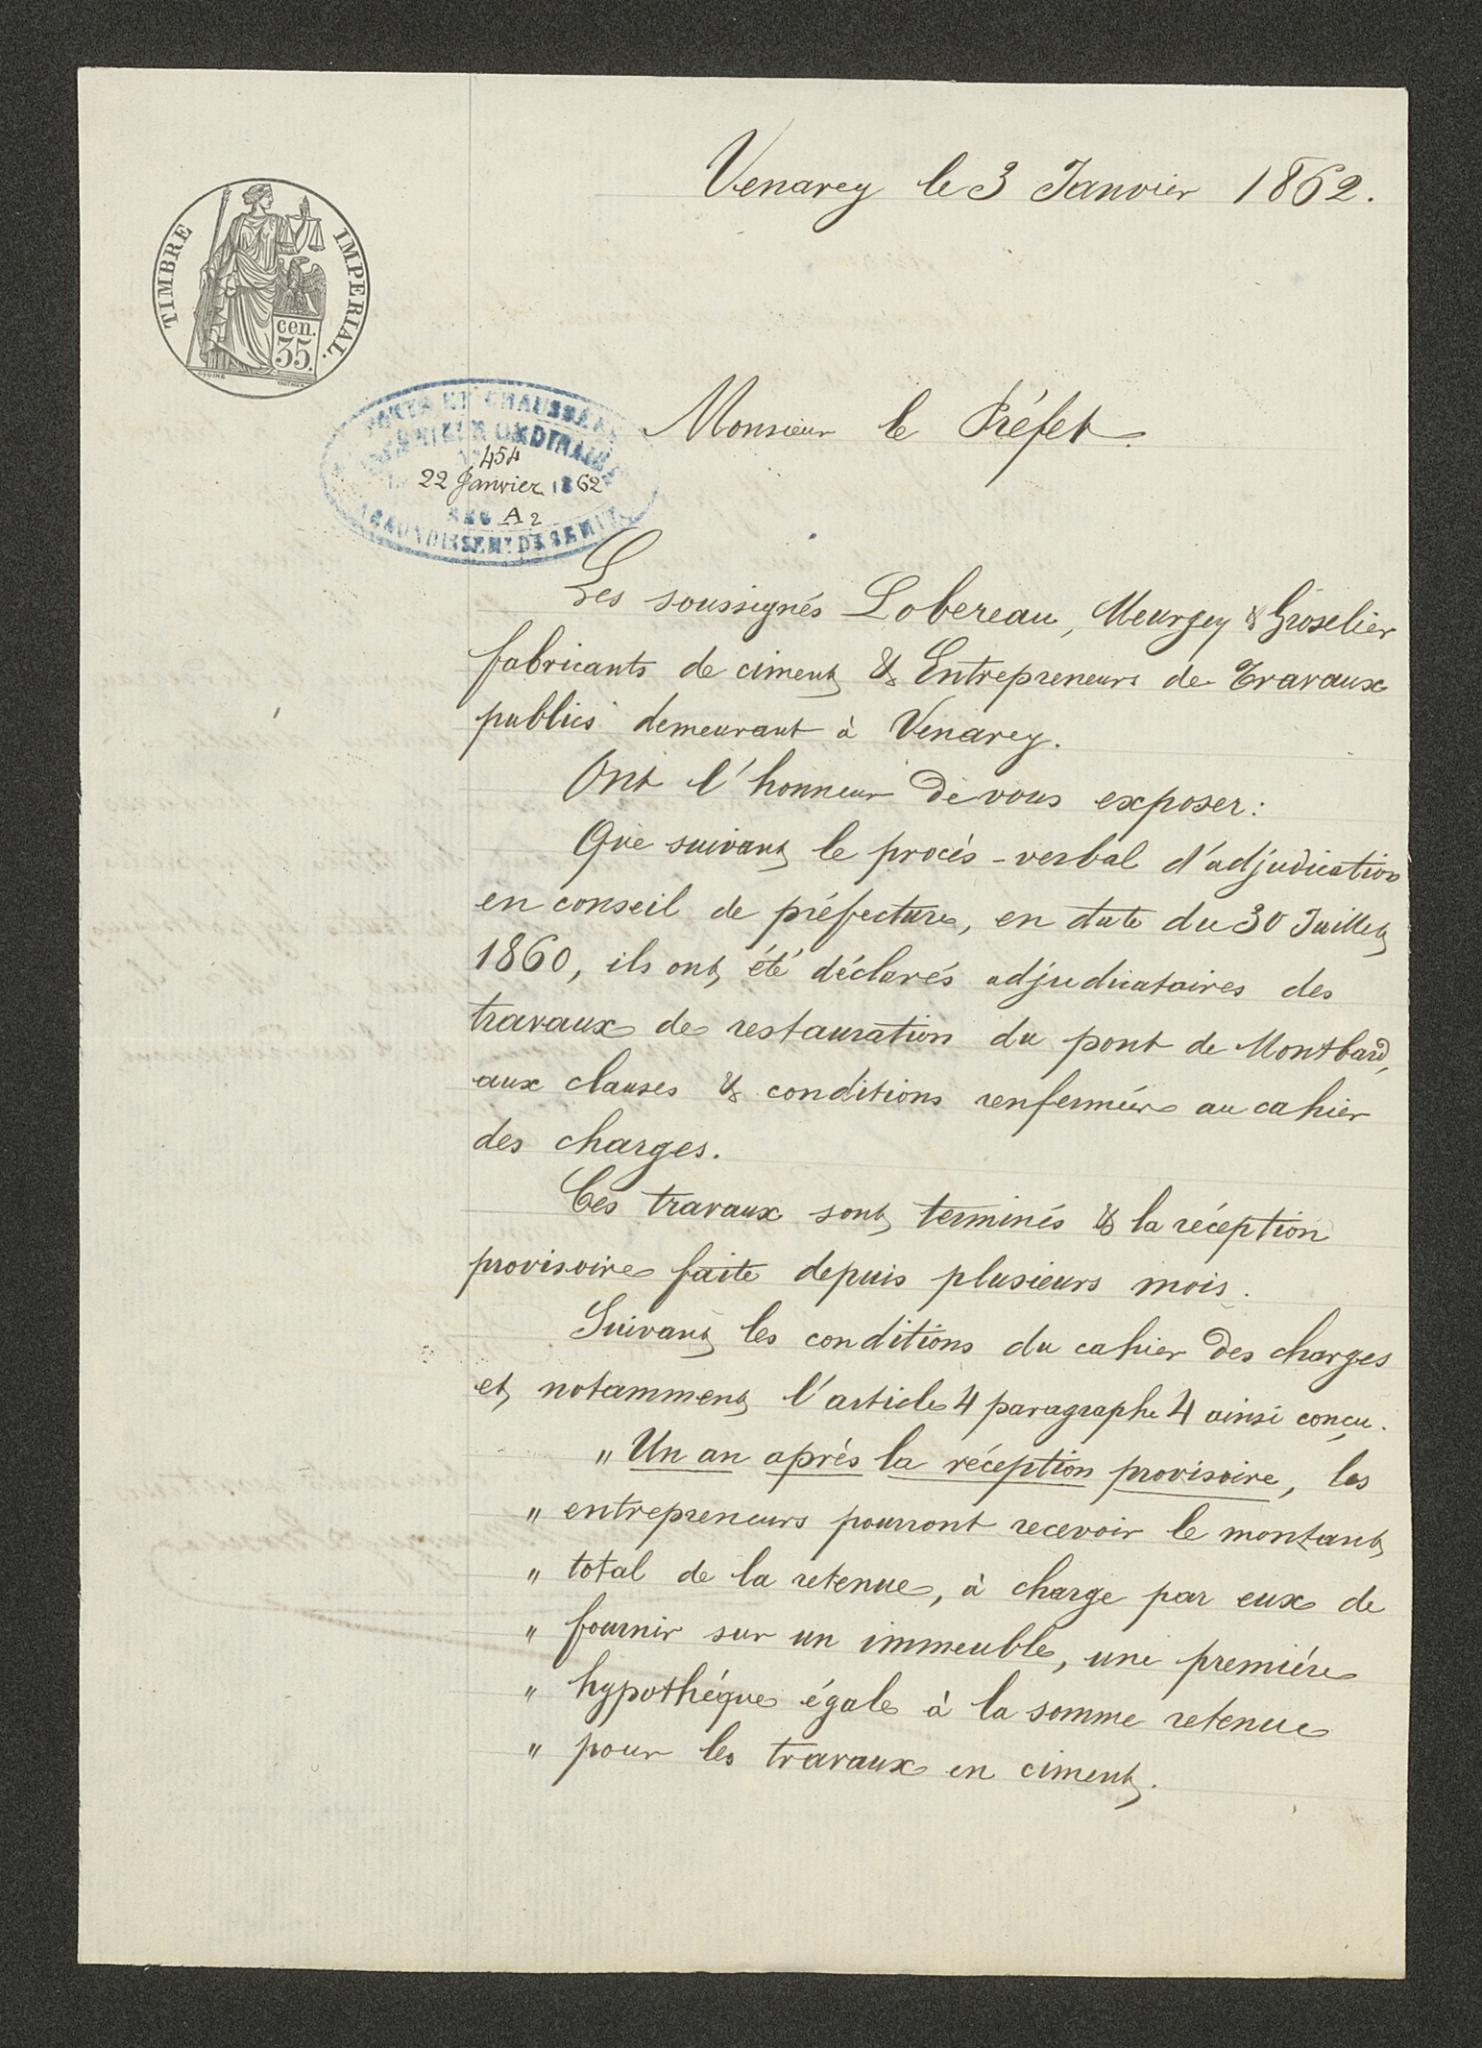 Venarey le 3 Janvier 1862.
TIMBRE IMPERIAL.
cen.
35.
Monsieur le Préfet.
PONTS ET CHAUSSÉES
INGÉNIEUR ORDINAIRE
454
22 Janvier 1862
A 2
ARRONDISSEMT DE SEMUR
Les soussignés Lobereau, Meurgey & Groselier
fabricants de ciment & Entrepreneurs de Travaux
publics demeurant à Venarey.
Ont l'honneur de vous exposer:
Que suivant le procès-verbal d'adjudication
en conseil de préfecture, en date du 30 Juillet
1860, ils ont été déclarés adjudicataires des
travaux de restauration du pont de Montbard,
aux clauses & conditions renfermées au cahier
des charges.
Ces travaux sont terminés & la réception
provisoire faite depuis plusieurs mois.
Suivant les conditions du cahier des charges
et notamment l'article 4 paragraphe 4 ainsi conçu.
" Un an après la réception provisoire, les
" entrepreneurs pourront recevoir le montant
" total de la retenue, à charge par eux de
" fournir sur un immeuble, une première
" hypothéque égale à la somme retenue
" pour les travaux en ciment.